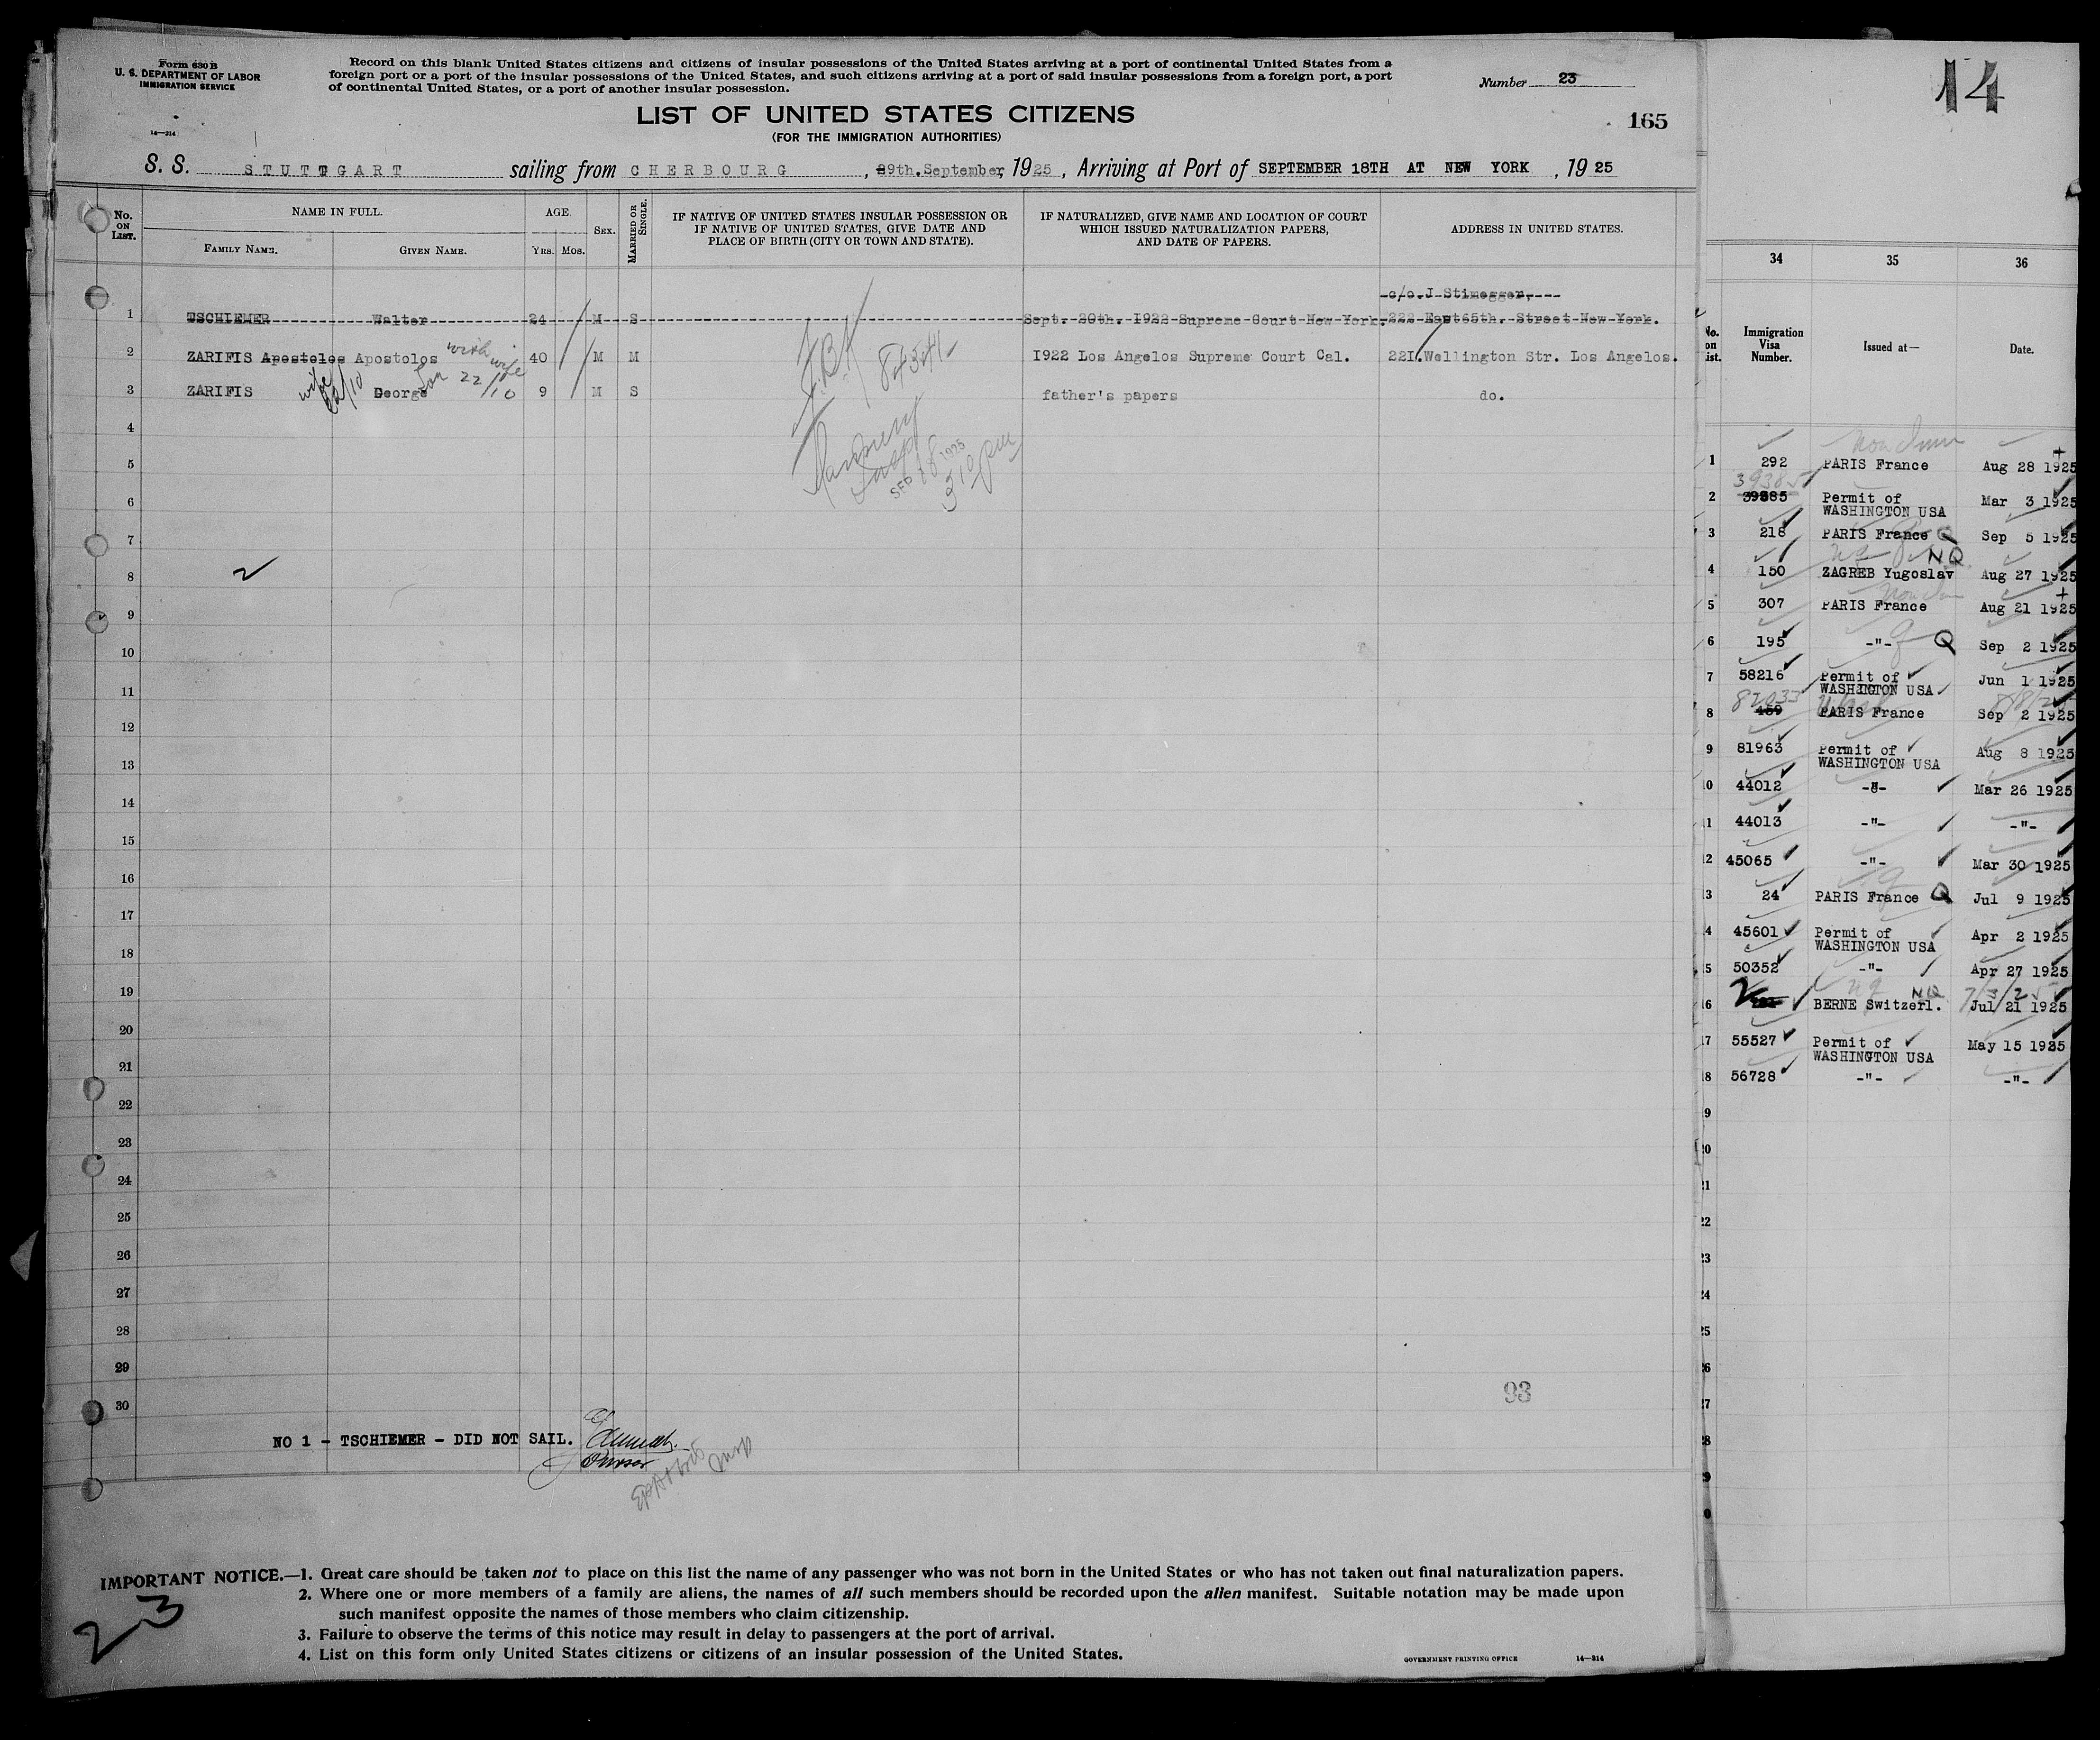 Form 630 B
U. S. DEPARTMENT OF LABOR
IMMIGRATION SERVICE
14—314
Record on this blank United States citizens and citizens of insular possessions of the United States arriving at a port of continental United States from a
foreign port or a port of the insular possessions of the United States, and such citizens arriving at a port of said insular possessions from a foreign port, a port
of continental United States, or a port of another insular possession.
Number 23
LIST OF UNITED STATES CITIZENS
(FOR THE IMMIGRATION AUTHORITIES)
165
S. S. STUTTGART sailing from CHERBOURG , 89th.September, 1925 , Arriving at Port of SEPTEMBER 18TH AT NEW YORK , 1925
No. ON LIST. NAME IN FULL. FAMILY NAME. GIVEN NAME. AGE. YRS. MOS. SEX. MARRIED OR SINGLE.
IF NATIVE OF UNITED STATES INSULAR POSSESSION OR
IF NATIVE OF UNITED STATES, GIVE DATE AND
PLACE OF BIRTH (CITY OR TOWN AND STATE).
IF NATURALIZED, GIVE NAME AND LOCATION OF COURT
WHICH ISSUED NATURALIZATION PAPERS,
AND DATE OF PAPERS.
ADDRESS IN UNITED STATES.
c/o.J Stimegger,
1 TSCHIEMER Walter 24 M S Sept. 20th. I922 Supreme Court New York. 222 East65th. Street New York.
2 ZARIFIS Apostolos Apostolos with wife 40 M M I922 Los Angelos Supreme Court Cal. 22I.Wellington Str. Los Angelos.
3 ZARIFIS wife 22/10 George Son 22/10 9 M S father's papers do.
SEP 18 1925
310 pm
4
5
6
7
8
9
10
11
12
13
14
15
16
17
18
19
20
21
22
23
24
25
26
27
28
29
30
2
93
NO 1 - TSCHIEMER - DID NOT SAIL.
Purser
IMPORTANT NOTICE.—1. Great care should be taken not to place on this list the name of any passenger who was not born in the United States or who has not taken out final naturalization papers.
2. Where one or more members of a family are aliens, the names of all such members should be recorded upon the alien manifest. Suitable notation may be made upon
such manifest opposite the names of those members who claim citizenship.
3. Failure to observe the terms of this notice may result in delay to passengers at the port of arrival.
4. List on this form only United States citizens or citizens of an insular possession of the United States.
23
GOVERNMENT PRINTING OFFICE 14—314
14
34 35 36
No. on List. Immigration Visa Number. Issued at— Date.
1 292 PARIS France Aug 28 1925
39385
2 39885 Permit of WASHINGTON USA Mar 3 1925
3 218 PARIS France Q Sep 5 1925
NQ
4 150 ZAGREB Yugoslav Aug 27 1925
5 307 PARIS France Aug 21 1925
6 195 -"- Q Sep 2 1925
7 58216 Permit of WASHINGTON USA Jun 1 1925
82033
8 459 PARIS France Sep 2 1925
9 81963 Permit of WASHINGTON USA Aug 8 1925
10 44012 -"- Mar 26 1925
11 44013 -"- -"-
12 45065 -"- Mar 30 1925
13 24 PARIS France Q Jul 9 1925
14 45601 Permit of WASHINGTON USA Apr 2 1925
15 50352 -"- Apr 27 1925
NQ
16 2 BERNE Switzerl. Jul 21 1925
17 55527 Permit of WASHINGTON USA May 15 1925
18 56728 -"- -"-
19
20
21
22
23
24
25
26
27
28
29
30